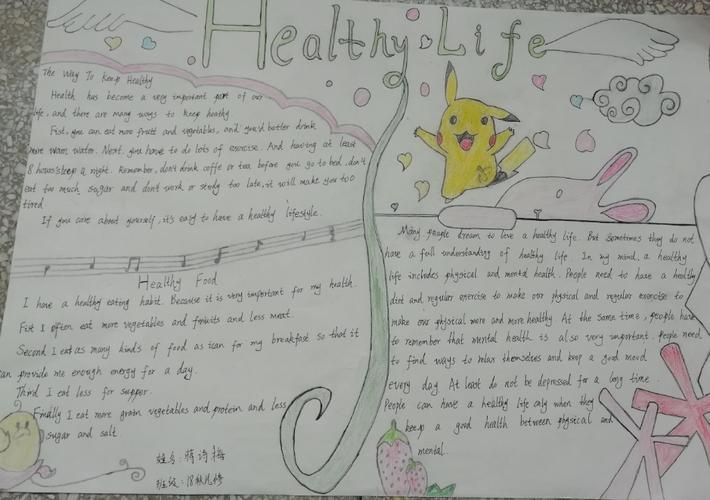 Healthy Life
The Way To Keep Healthy
Health has become a very important part of our
life, and there are many ways to keep heathy
Fist, you can eat more fruit and vegetables, and you'd better drink
more warm water. Next. you have to do lots of exercise. And having at least
8 hours sleep a night. Remember, don't drink coffe or tea before you go to bed, don't
eat too much sugar and dont work or study too late, it will make you too
tired.
If you care about yourself, it's easy to have a healthy lifestyle.
Healthy Food
I have a healthy eating habit. Because it is very important for my health.
Fist I often eat more vegetables and fruits and less meat.
Second I eat as many kinds of food as ican for my breakfast so that it
can provide me enough energy for a day.
Third I eat less for supper.
Finally I eat more grain vegetables and protein and less
sugar and salt.
姓名:蒋诗梅
班级:18秋
Many people dream to live a healthy life. But sometimes they do not
have a full understanding of healthy life In my mind, a healthy
life includes physical and mental health. People need to have a healthy
diet and regular exercise to make our physical and regular exercise to
make our physical more and more healthy. At the same time, people have
to remember that mental health is also very important. people need
to find ways to relax themselves and keep a good mood
every day At least do not be depressed for a long time.
People can have a healthy life only when they
keep a good health between physical and
mental.